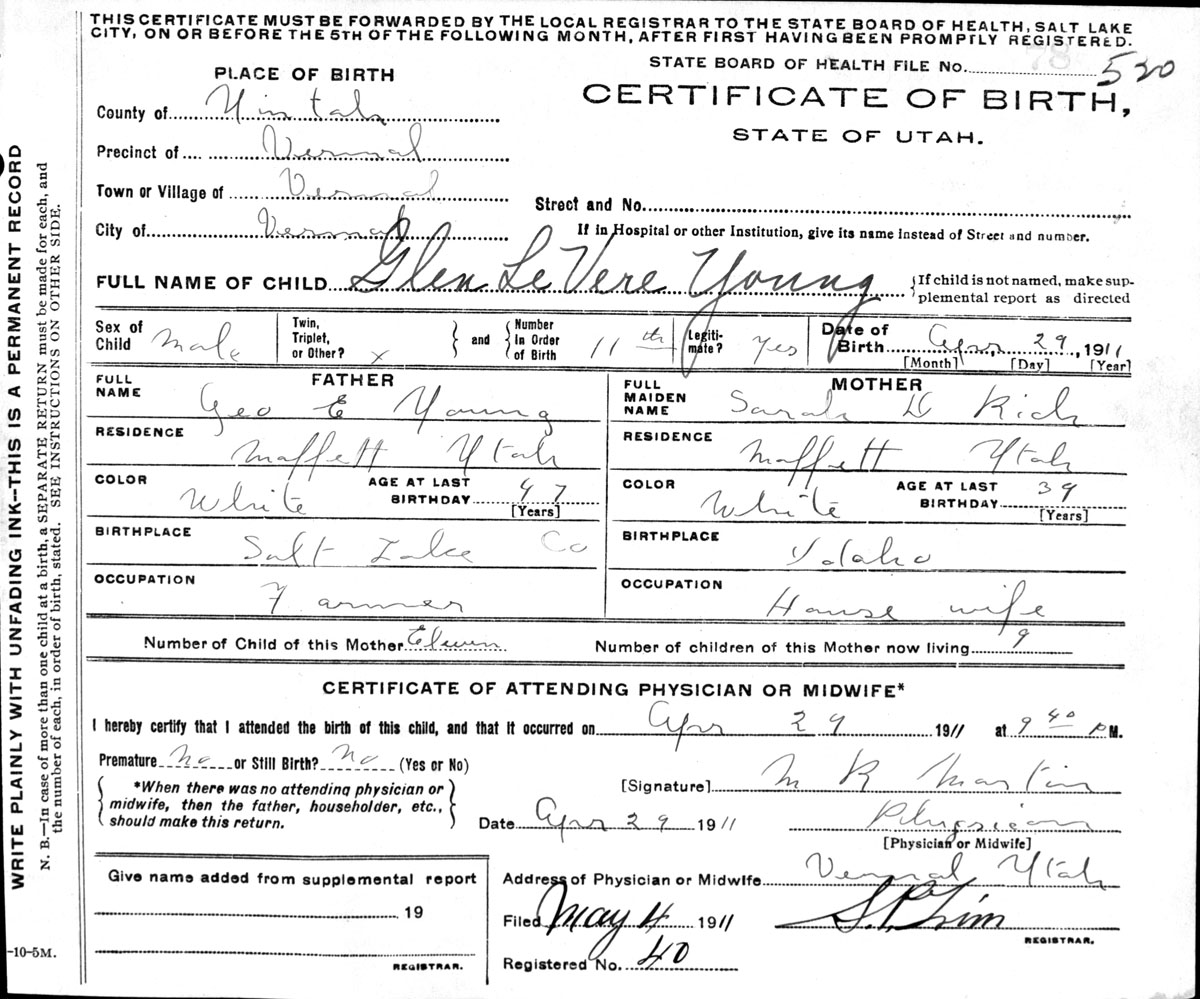 THIS CERTIFICATE MUST BE FORWARDED BY THE LOCAL REGISTRAR TO THE STATE BOARD OF HEALTH, SALT LAKE
CITY, ON OR BEFORE THE 5TH OF THE FOLLOWING MONTH, AFTER FIRST HAVING BEEN PROMPTLY REGISTERED.
STATE BOARD OF HEALTH FILE No. 78 520
PLACE OF BIRTH
CERTIFICATE OF BIRTH,
STATE OF UTAH.
County of Uintah
Precinct of Vernal
Town or Village of Vernal
Street and No.
City of Vernal
If in Hospital or other Institution, give its name instead of Street and number.
FULL NAME OF CHILD Glen Le Vere Young
{If child is not named, make sup-
plemental report as directed
Sex of Child Male Twin, Triplet, or Other? x } and { Number In Order of Birth 11th Legiti-mate? Yes Date of Birth Apr, 29, 1911
[Month] [Day] [Year]
FATHER MOTHER
FULL NAME Geo E Young
FULL MAIDEN NAME Sarah D Rich
RESIDENCE Moffett Utah
RESIDENCE Moffett Utah
COLOR White AGE AT LAST BIRTHDAY 47 [Years]
COLOR White AGE AT LAST BIRTHDAY 39 [Years]
BIRTHPLACE Salt Lake Co
BIRTHPLACE Idaho
OCCUPATION Farmer
OCCUPATION House wife
Number of Child of this Mother Eleven Number of children of this Mother now living 9
CERTIFICATE OF ATTENDING PHYSICIAN OR MIDWIFE*
I hereby certify that I attended the birth of this child, and that it occurred on Apr 29 1911 at 9 40 PM.
Premature No or Still Birth? No (Yes or No)
[Signature] M R Martin
*When there was no attending physician or
midwife, then the father, householder, etc.,
should make this return.
Date Apr 29 1911 Physician
[Physician or Midwife]
Give name added from supplemental report
19
REGISTRAR.
Address of Physician or Midwife Vernal Utah
Filed May 4 1911
REGISTRAR.
Registered No. 40
-10-5M.
WRITE PLAINLY WITH UNFADING INK--THIS IS A PERMANENT RECORD
N. B.—In case of more than one child at a birth, a SEPARATE RETURN must be made for each, and
the number of each, in order of birth, stated. SEE INSTRUCTIONS ON OTHER SIDE.